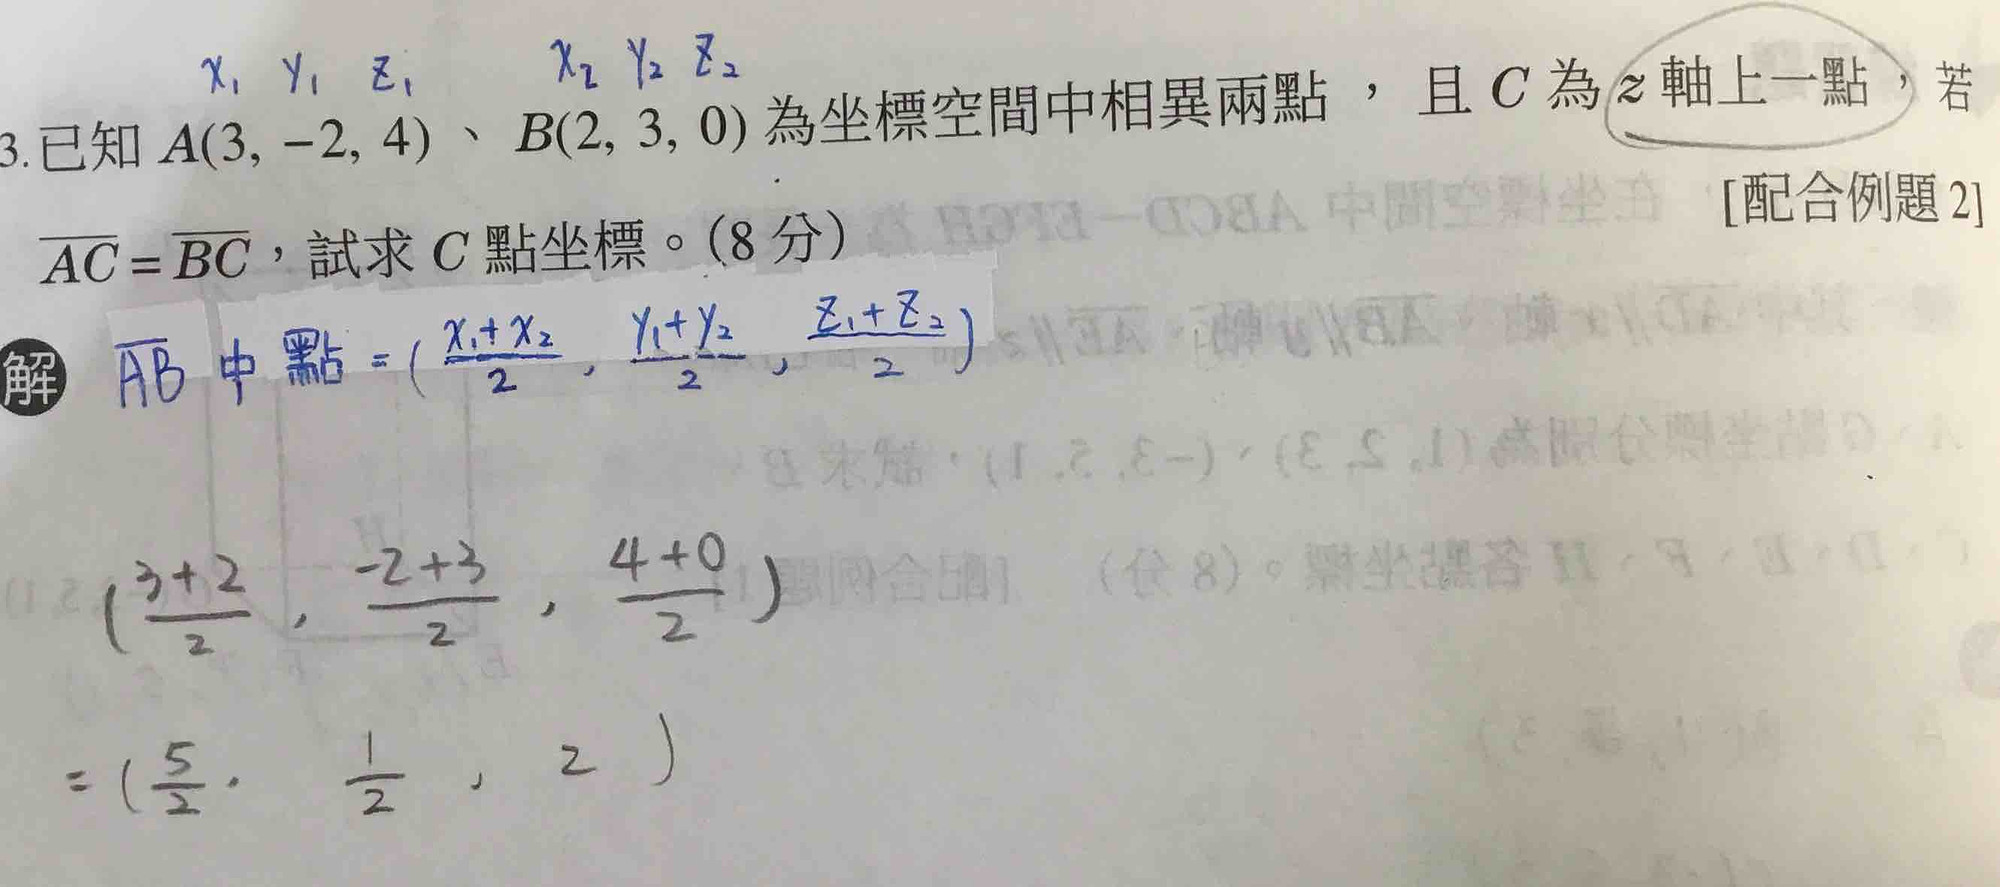 x₁ y₁ z₁ x₂ y₂ z₂
3.已知 A(3, −2, 4)、B(2, 3, 0)為坐標空間中相異兩點，且 C 為 z 軸上一點，若
AC = BC，試求 C 點坐標。(8 分)
[配合例題 2]
解 AB 中點 = (x₁+x₂/2, y₁+y₂/2, z₁+z₂/2)
(3+2/2, -2+3/2, 4+0/2)
= (5/2, 1/2, 2)